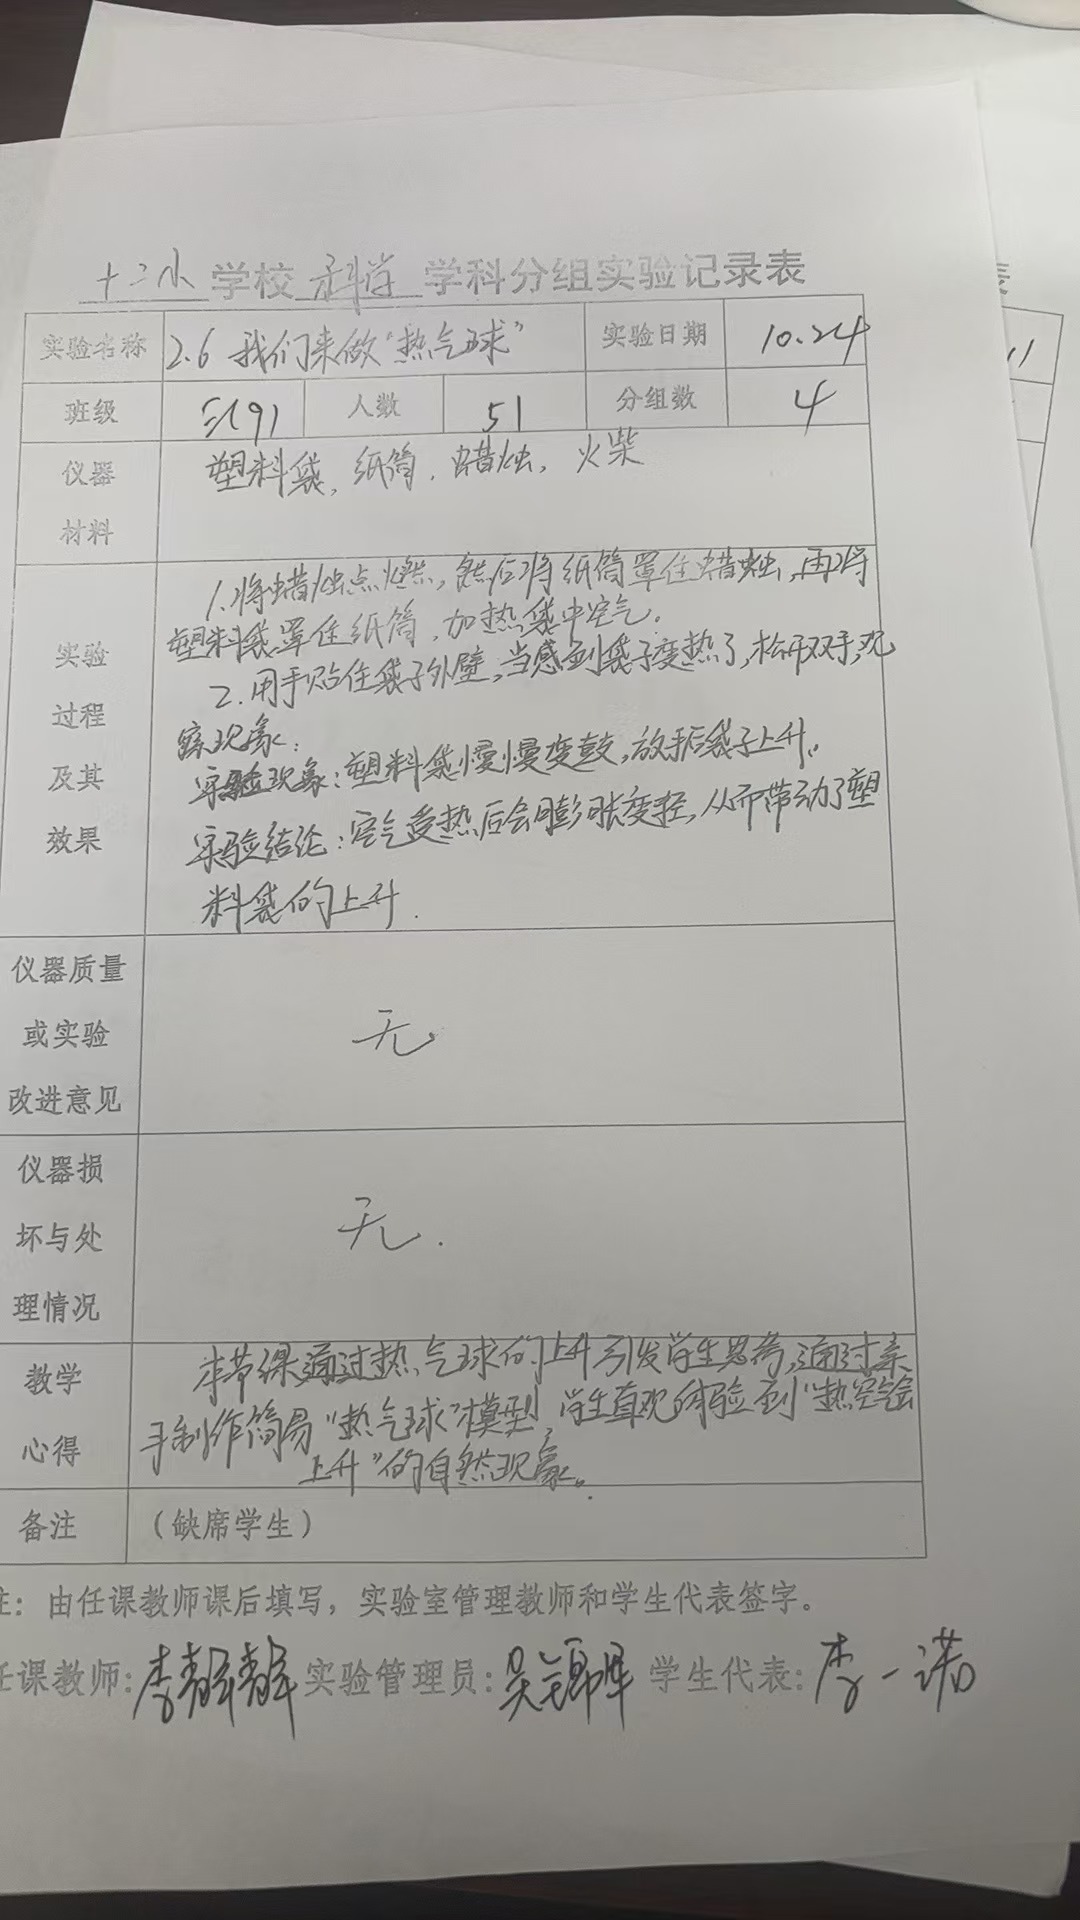 十二小 学校 科学 学科分组实验记录表
实验名称 2.6 我们来做“热气球” 实验日期 10.24
班级 三(9) 人数 51 分组数 4
仪器材料 塑料袋、纸筒、蜡烛、火柴
实验过程及其效果
1.将蜡烛点燃,然后将纸筒罩住蜡烛,再将
塑料袋罩住纸筒,加热袋中空气。
2.用手贴住袋子外壁,当感到袋子变热了,松开双手,观
察现象:
实验现象:塑料袋慢慢变鼓,放手后袋子上升。
实验结论:空气受热后会膨胀变轻,从而带动了塑
料袋的上升.
仪器质量或实验改进意见 无
仪器损坏与处理情况 无.
教学心得
本节课通过热气球的上升引发学生思考,通过亲
手制作简易“热气球”模型,学生直观体验到“热空气会
上升”的自然现象。
备注 (缺席学生)
注:由任课教师课后填写,实验室管理教师和学生代表签字。
任课教师: 实验管理员: 学生代表:李一诺
表
11